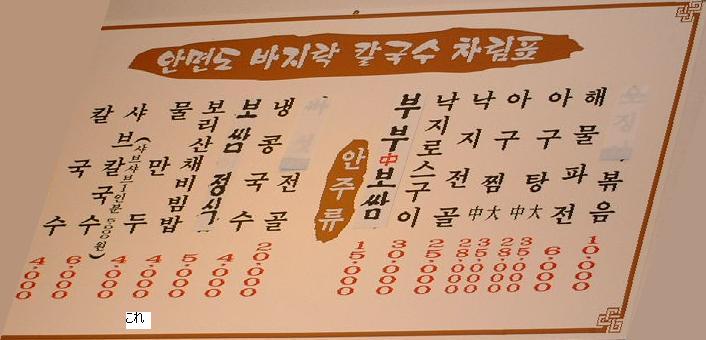 안면도 바지락 칼국수 차림표
칼국수 4.000
샤브칼국수 (샤브샤브1인분5000원) 6.000
물만두 4.000
보리산채비빔밥 4.000
보쌈정식 5.000
냉콩국수 4.000
전골 20.000
안주류
부부中보쌈 15.000
낙지로스구이 30.000
낙지전골 25.000
아구찜 中大 28.000 35.000
아구탕 中大 28.000 35.000
해물파전 6.000
볶음 10.000
これ